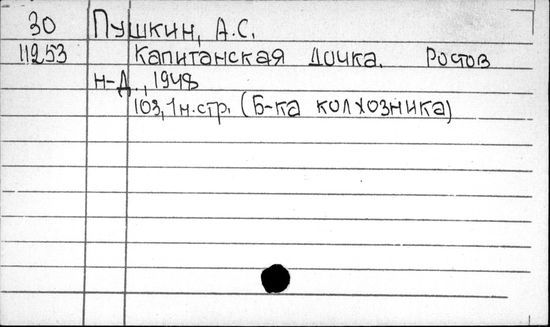 30 Пушкин, А.С.
11253 Капитанская дочка. Ростов
н-Д., 1948
103,1н.стр. (Б-ка колхозника)